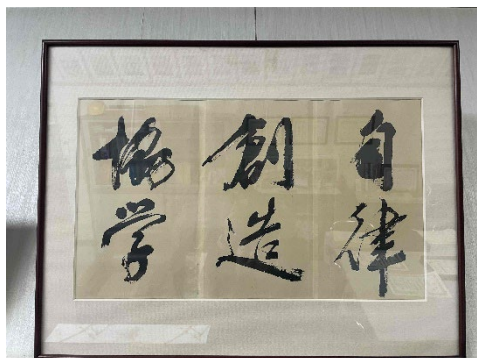 自律
創造
協学